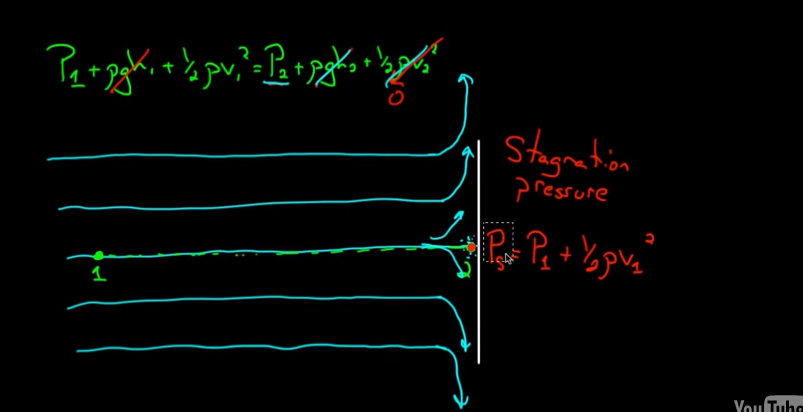 P₁ + ρgh₁ + ½ρv₁² = P₂ + ρgh₂ + ½ρv₂²
0
Stagnation
pressure
1
2
Pₛ = P₁ + ½ρv₁²
YouTube